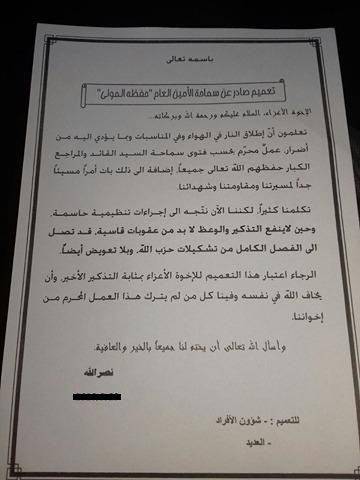 باسمه تعالى
تعميم صادر عن سماحة الأمين العام "حفظه المولى"
الإخوة الأعزاء، السلام عليكم ورحمة الله وبركاته...
تعلمون أنّ إطلاق النار في الهواء وفي المناسبات وبما يؤدي اليه من
أضرار، عملٌ محرّم بحسب فتوى سماحة السيد القائد والمراجع
الكبار حفظهم الله تعالى جميعاً. إضافة الى ذلك بات أمراً مسيئاً
جداً لمسيرتنا ومقاومتنا وشهدائنا.
تكلمنا كثيراً، لكننا الآن نتّجه الى إجراءات تنظيمية حاسمة،
وحين لاينفع التذكير والوعظ لا بد من عقوبات قاسية، قد تصل
الى الفصل الكامل من تشكيلات حزب الله، وبلا تعويض أيضاً.
الرجاء اعتبار هذا التعميم للإخوة الأعزاء بمثابة التذكير الأخير، وأن
يخاف الله في نفسه وفينا كل من لم يترك هذا العمل المحرم من
إخواننا.
وأسأل الله تعالى أن يختم لنا جميعاً بالخير والعافية.
نصرالله
للتعميم : - شؤون الأفراد
- العديد